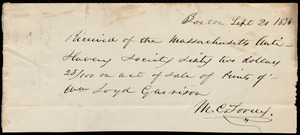 Boston Sept 20 1836
Received of the Massachusetts Anti-
Slavery Society Sixty two dollars
23/100 on act of Sale of Prints of
Wm Loyd Garrison
M. C. Torrey